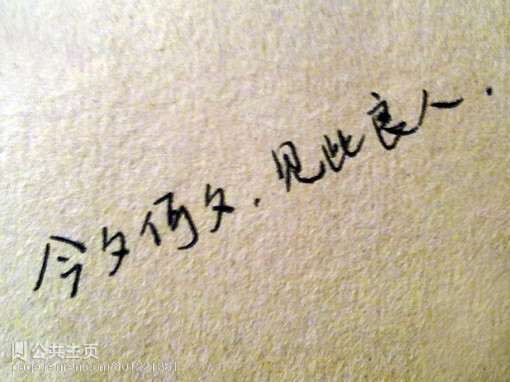 今夕何夕.见此良人.
公共主页
page.renren.com/601221881